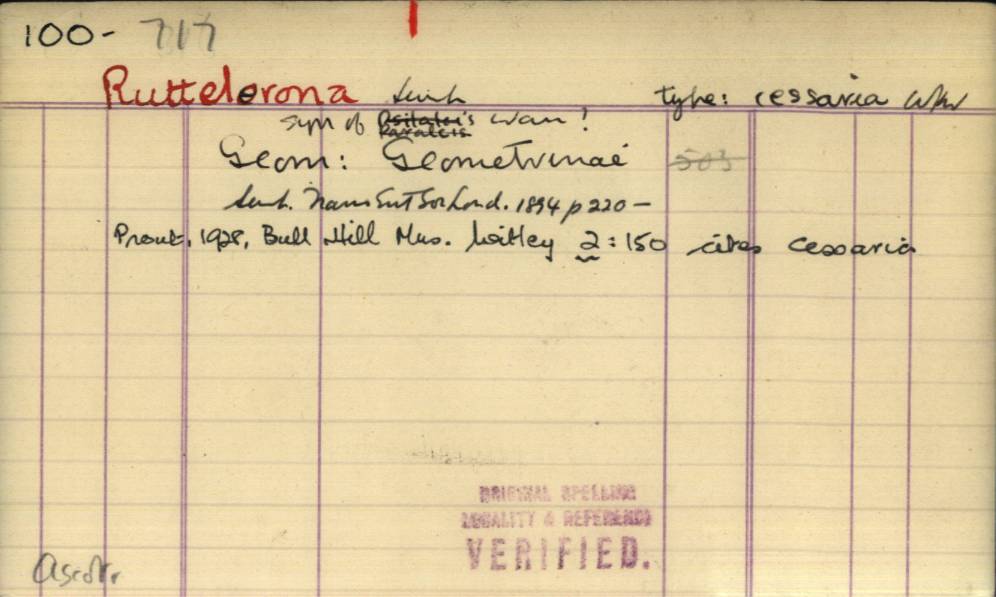 100- 717
Ruttelorona Swinh type: cessaria Wkr
syn of Psilalcis Warr!
Paralcis
Geom: Geometrinae 503
Swinh. Trans Ent Soc Lond. 1894 p 220 -
Prout, 1928, Bull Hill Mus. Witley 2:150 cites cessaria
ORIGINAL SPELLING
LOCALITY & REFERENCE
VERIFIED.